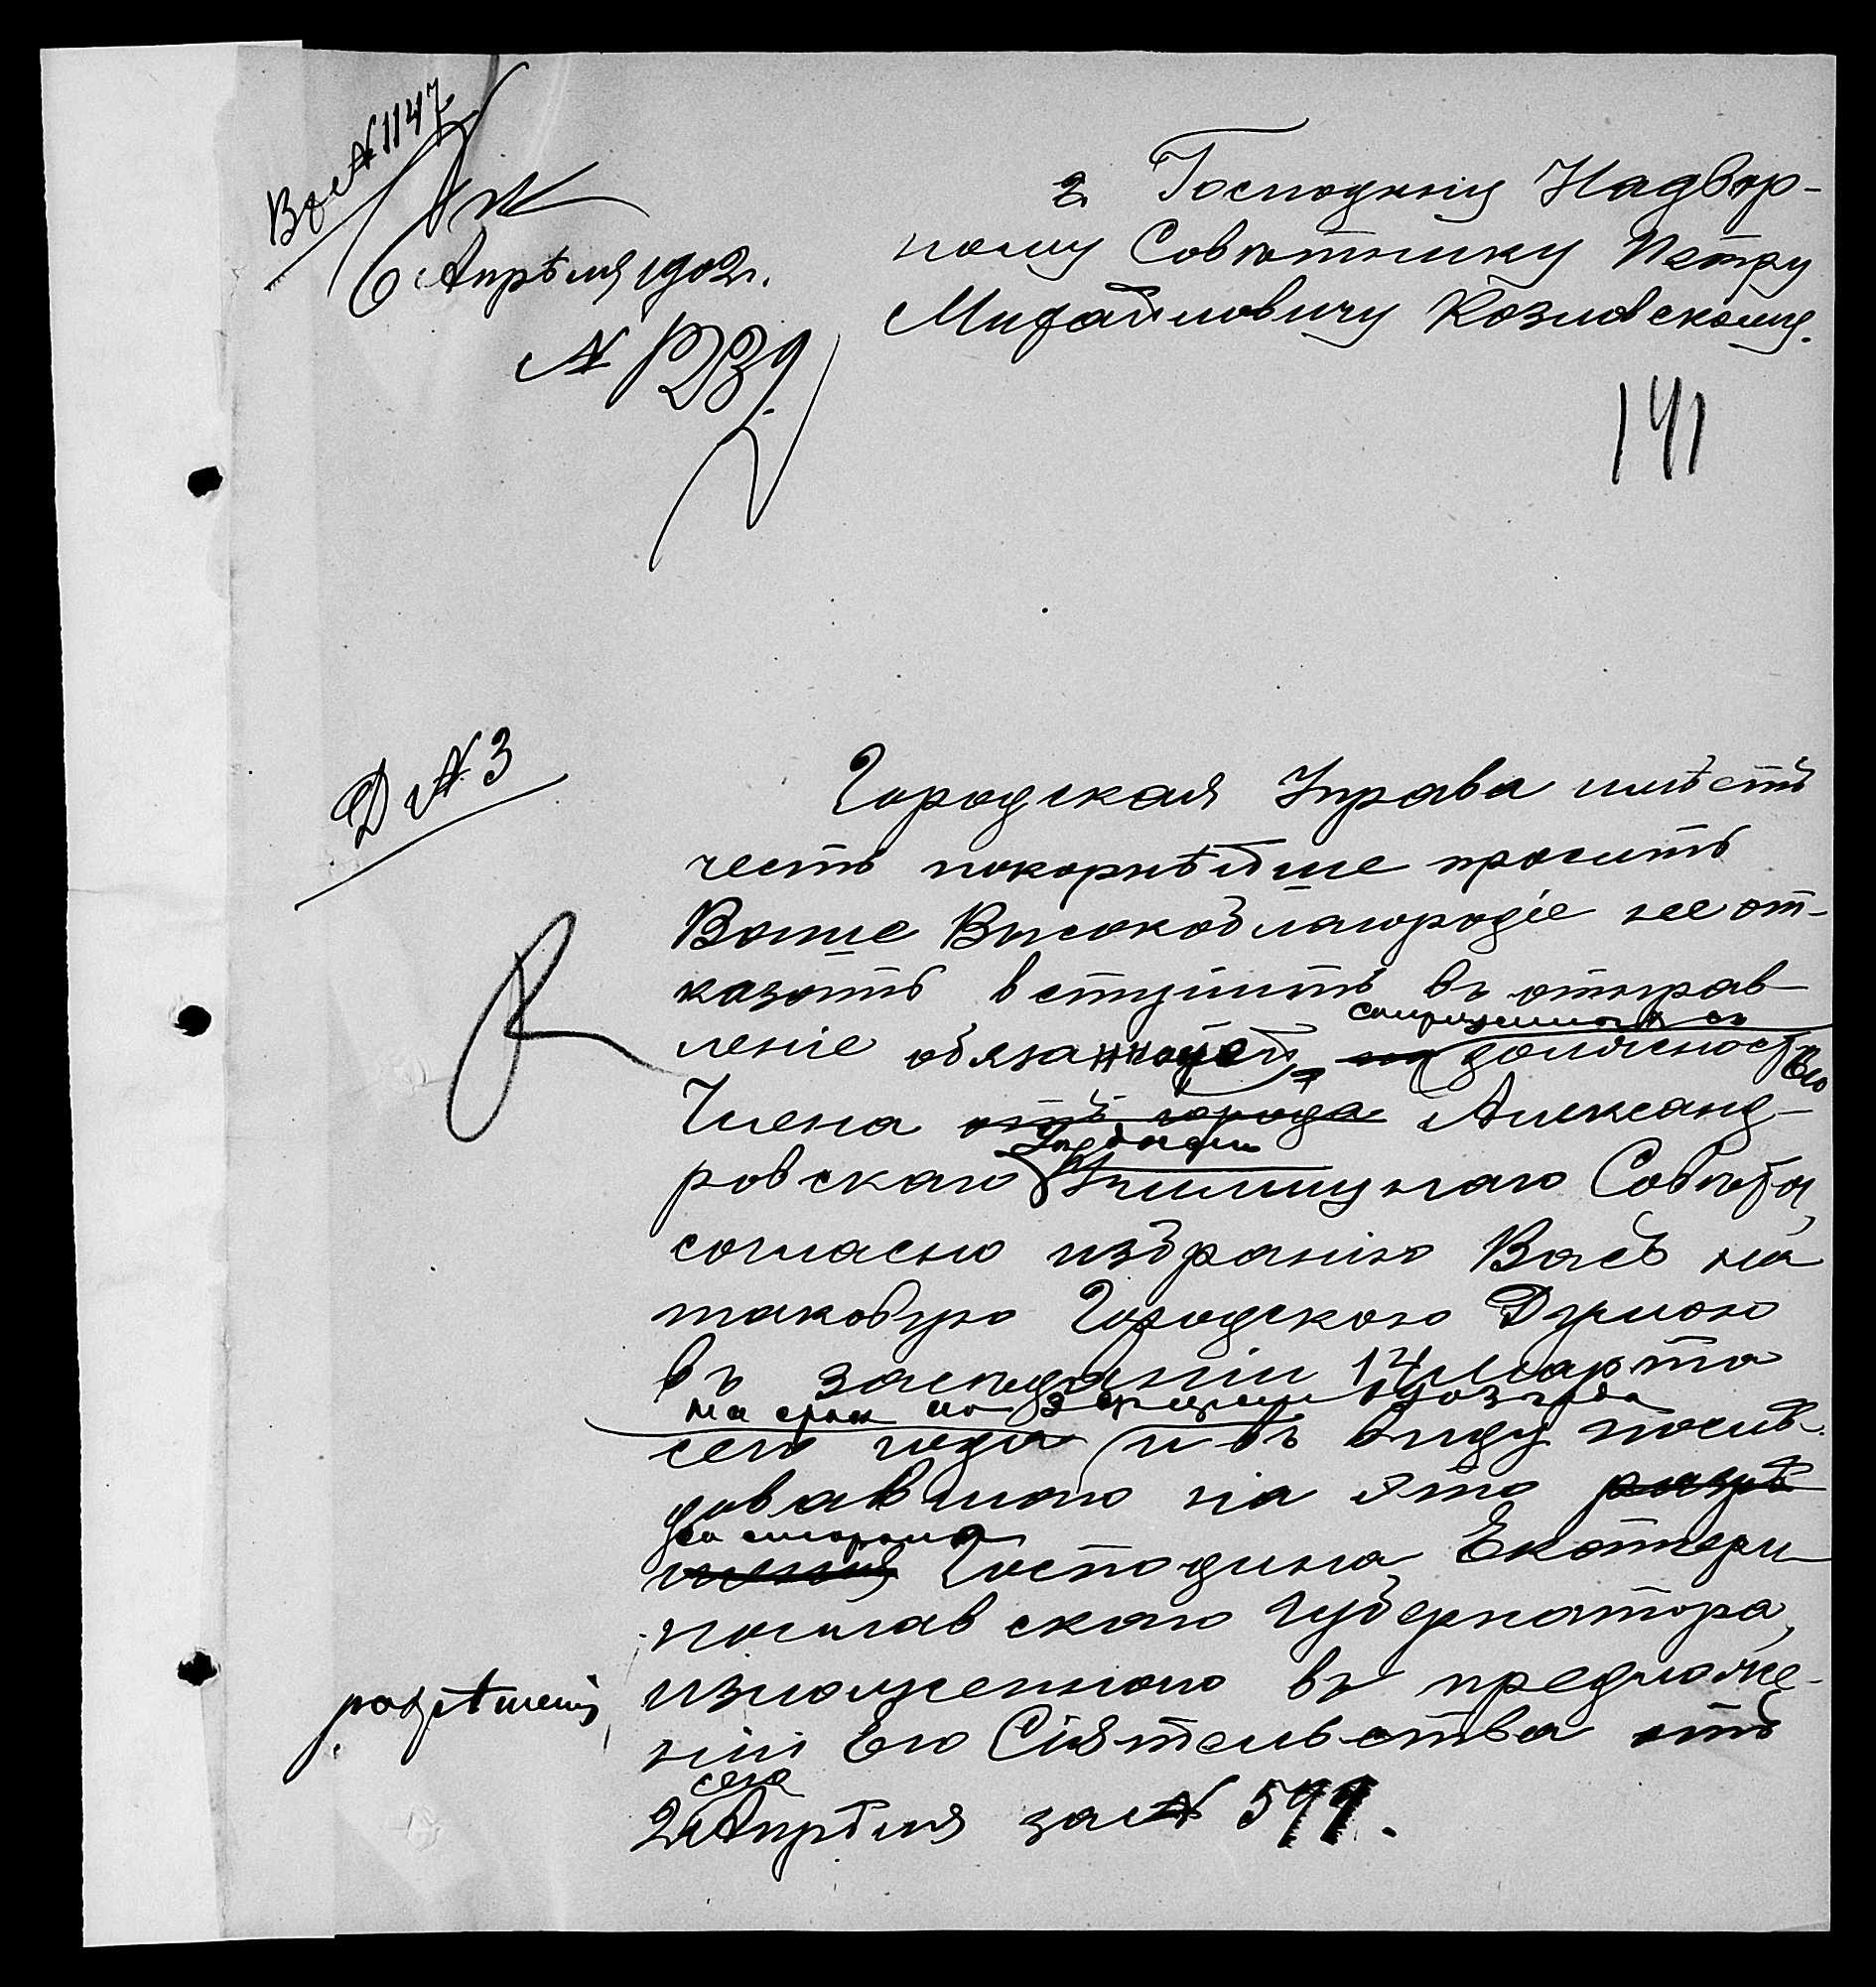 Вх. № 1147
6 Апрѣля 1902 г.
№ 1239
г. Господину Надвор-
ному Совѣтнику Петру
Михайловичу Козловскому.
141
Д № 3
Городская Управа имѣетъ
честь покорнѣйше просить
Ваше Высокоблагородіе не от-
казать вступить въ отправ-
сопряженныхъ съ
леніе обязанностей, должностью
Члена отъ города Александ-
ровскаго Училищнаго Совѣта,
согласно избранію Васъ на
таковую Городскою Думою
въ засѣданіи 14 марта
на срокъ по
сего года и въ виду послѣ-
довавшаго на это разрѣ-
со стороны
шенія Господина Екатери-
нославскаго Губернатора,
изложеннаго въ предложе-
разрѣшенія
ніи Его Сіятельства отъ
сего
2 Апрѣля за № 599.